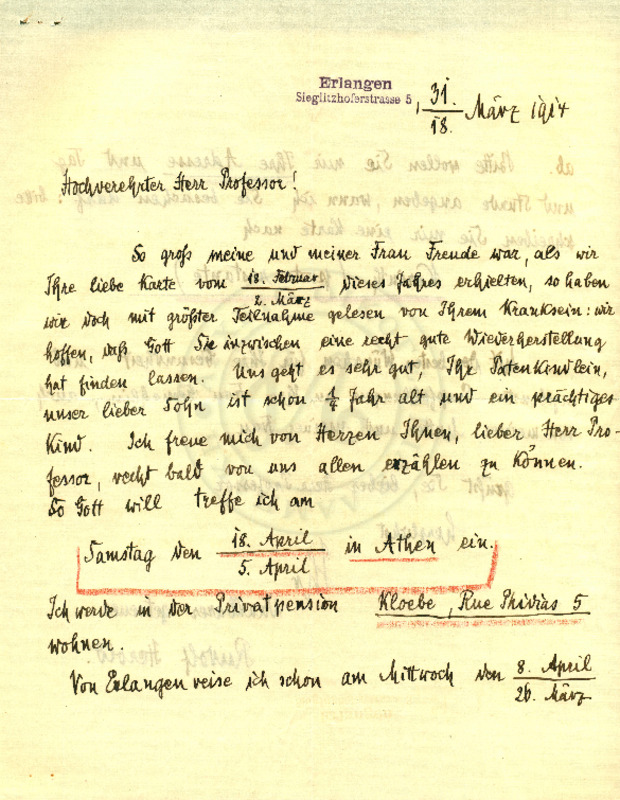 Erlangen
Sieglitzhoferstrasse 5, 31./18. März 1914
Hochverehrter Herr Professor!
So groß meine und meiner Frau Freude war, als wir
Ihre liebe Karte vom 18. Februar/2. März dieses Jahres erhielten, so haben
wir doch mit größter Teilnahme gelesen von Ihrem Kranksein: wir
hoffen, daß Gott Sie inzwischen eine recht gute Wiederherstellung
hat finden lassen. Uns geht es sehr gut, Ihr Patenkindlein,
unser lieber Sohn ist schon Jahr alt und ein prächtiges
Kind. Ich freue mich von Herzen Ihnen, lieber Herr Pro-
fessor, recht bald von uns allen erzählen zu können.
So Gott will treffe ich am
Samstag den 18. April/5. April in Athen ein.
Ich werde in der Privatpension Kloebe, Rue Phidias 5
wohnen.
Von Erlangen reise ich schon am Mittwoch den 8. April/26. März